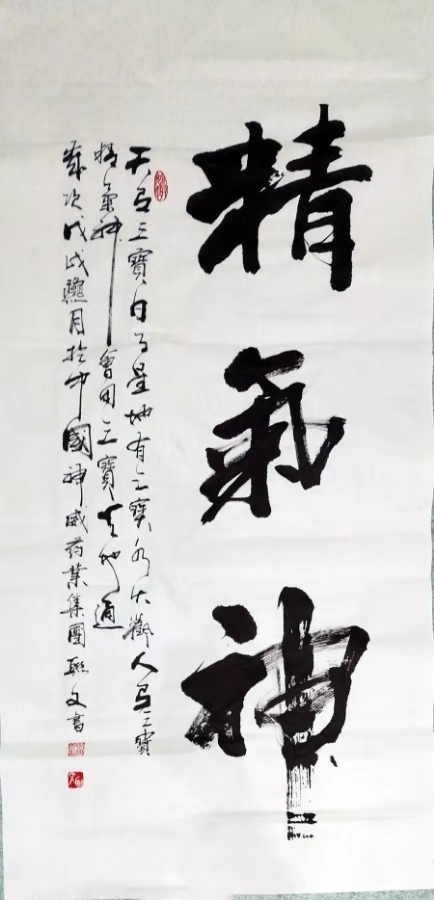 精氣神
天有三寶日月星地有三寶水火人有三寶
精氣神會用三寶天地通
歲次戊戌臘月於中國神威药業集團聯文書